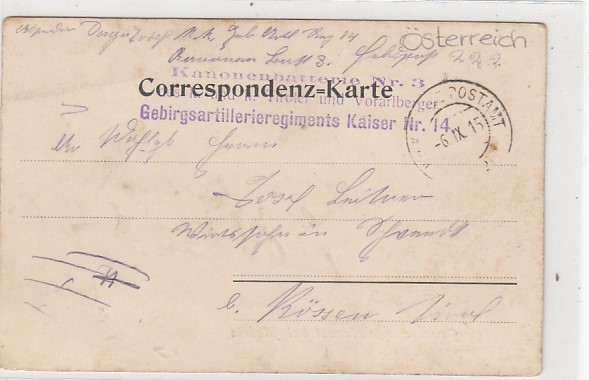 Österreich
k. k. Geb. Art. Reg 14
Kanonen Batt 3. Feldpost 222
Kanonenbatterie Nr. 3
Correspondenz-Karte
Tiroler und Vorarlberger
Gebirgsartillerieregiments Kaiser Nr. 14
POSTAMT
-6. IX. 15
Herrn
Josef Leitner
Wirtssohn in Schwendt
b. Kössen Tirol